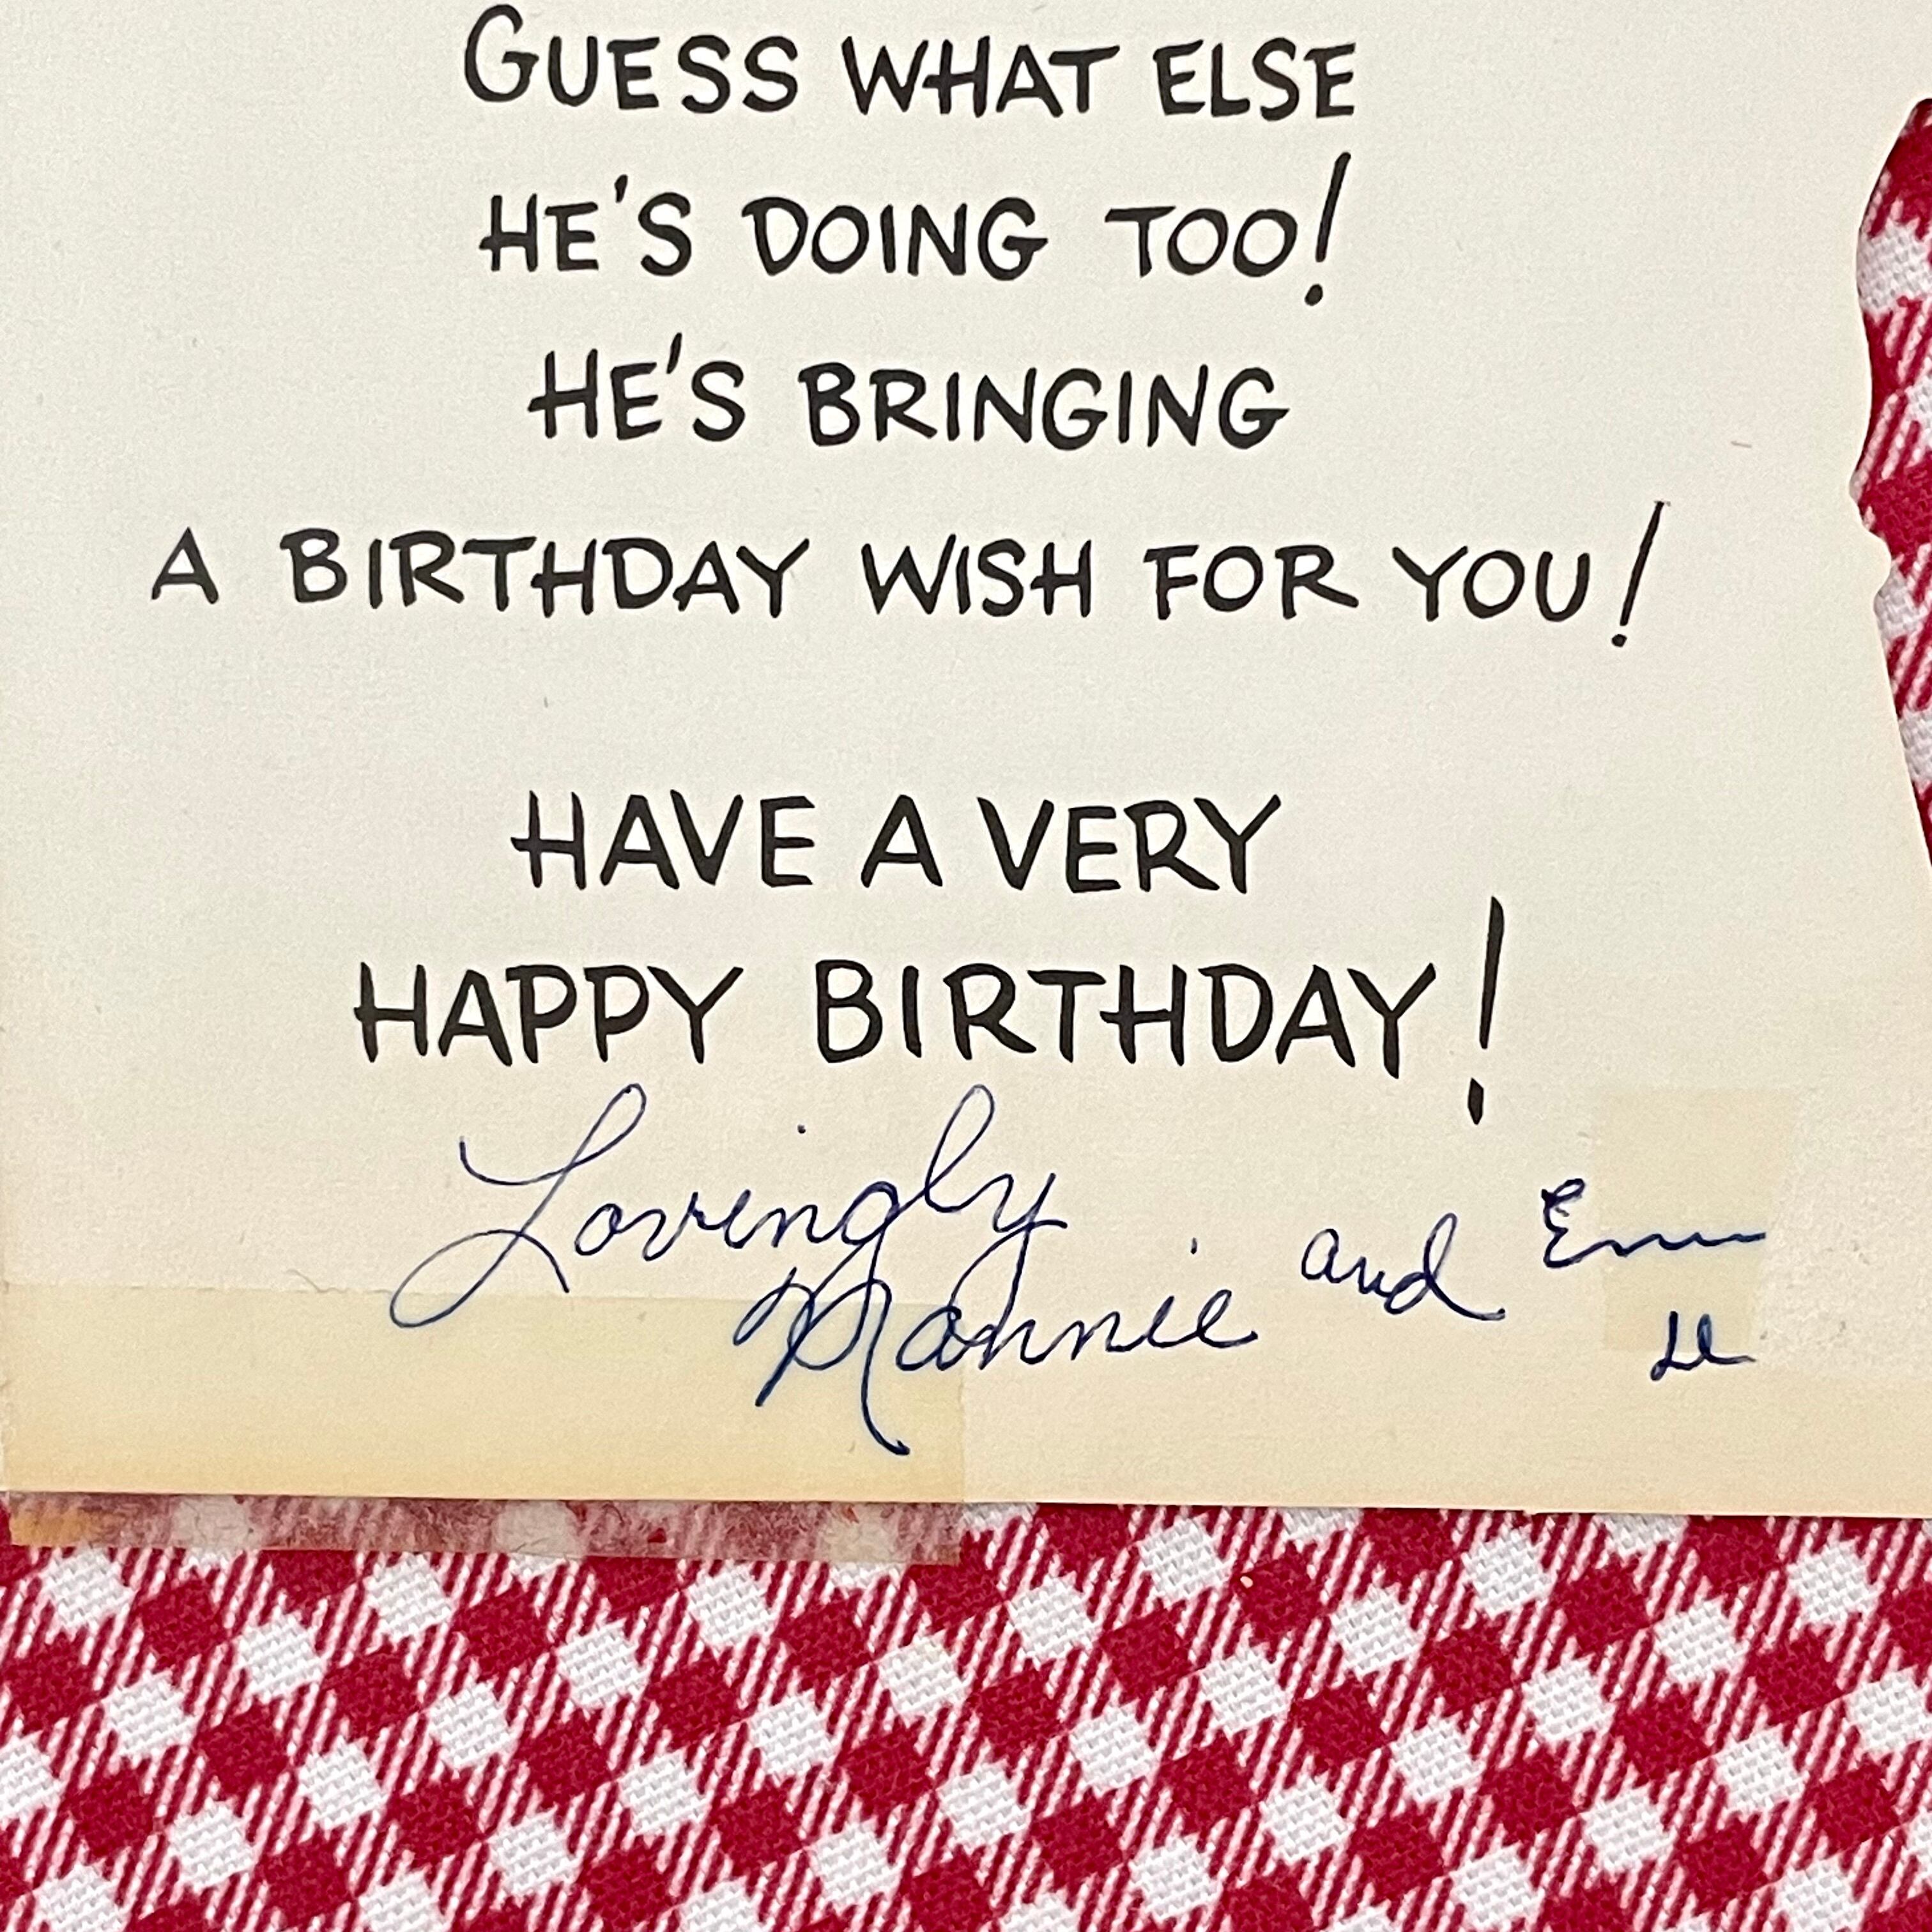 GUESS WHAT ELSE
HE'S DOING TOO!
HE'S BRINGING
A BIRTHDAY WISH FOR YOU!
HAVE A VERY
HAPPY BIRTHDAY!
Lovingly
Mannie and